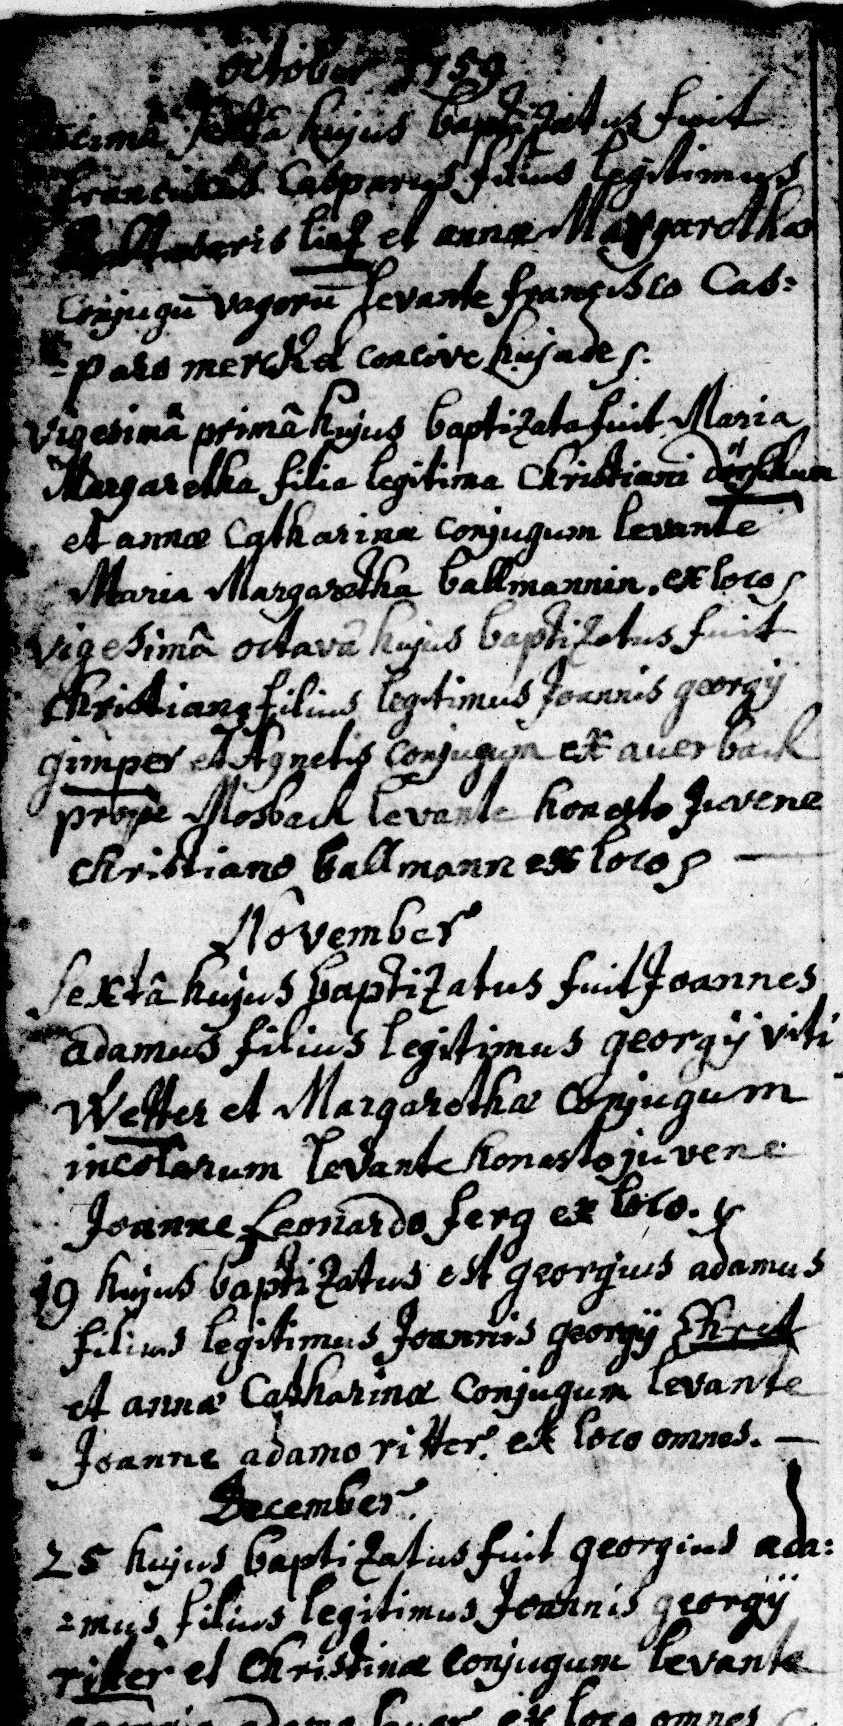 october 1759
decimâ sextâ hujus baptizatus fuit
franciscus Casparus filius legitimus
Balthasaris linz et annæ Margarethæ
conjugū vagorū levante francisco Cas:
=paro merckel concive hujade s.
vigesimâ primâ hujus baptizata fuit Maria
Margaretha filia legitima Christiani
et annæ Catharinæ conjugum levante
Maria Margaretha ballmannin. ex loco s
vigesimâ octavâ hujus baptizatus fuit
christiang filius legitimus Joannis georgij
gimper et Agnetis conjugum ex auerback
prope Mosback levante honesto Juvene
christiano ballmann ex loco s —
November
sextâ hujus baptizatus fuit Joannes
adamus filius legitimus georgij viti
Wetter et Margarethæ conjugum
incolarum levante honesto juvene
Joanne Leonardo ferg ex loco. s
19 hujus baptizatus est georgius adamus
filius legitimus Joannis georgij
et annæ Catharinæ conjugum levante
Joanne adamo ritter. ex loco omnes. —
December
25 hujus baptizatus fuit georgius ada:
=mus filius legitimus Joannis georgij
ritter et Christinæ conjugum levante
georgio adamo ex loco omnes